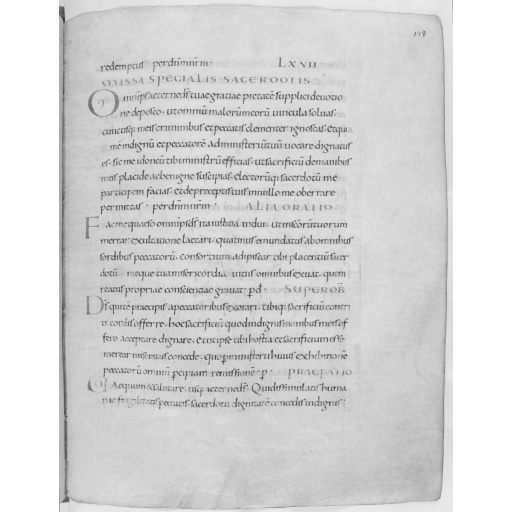 118
redemptus · perdnmnrm · LXVII
MISSA SPECIALIS SACERDOTIS
Omnips aeterne ds tuae gratiae pietate supplici deuotio
ne deposco · ut omniu maloru meoru uincula soluas ·
cunctisq; meis criminibus et peccatis clementer ignoscas · et quia
me indignu et peccatore ad ministeriu tuu uocare dignatus
es · sic me idoneu tibi ministru efficias · ut sacrificiu de manibus
meis placide ac benigne suscipias · electorumq; sacerdotu me
participem facias · et de preceptis tuis in nullo me oberrare
permittas · perdnmnrm · ALIA ORATIO
Fac me quaeso omnips ds ita iustitia indui · ut in scoru tuorum
merear exultatione laetari · quatinus emundatus ab omnibus
sordibus peccatoru · consortium adipiscar tibi placentiu sacer
dotu · meque tua misericordia · a uitiis omnibus exuat · quem
reatus propriae conscientiae grauat · pd · SUPER OB
Ds qui te praecipis a peccatoribus exorari · tibiq; sacrificiu contri
ti cordis offerre · hoc sacrificiu quod indignis manibus meis of
fero acceptare dignare · et ut ipse tibi hostia et sacrificium esse
merear miseratus concede · quo p ministerii huius exhibitione
peccatoru omniu pcipiam remissione · p · PRAEFATIO
Aequum et salutare · usq; aeterne ds · Qui dissimulatis huma
nae fragilitatis peccatis · sacerdotii dignitate concedis indignis ·